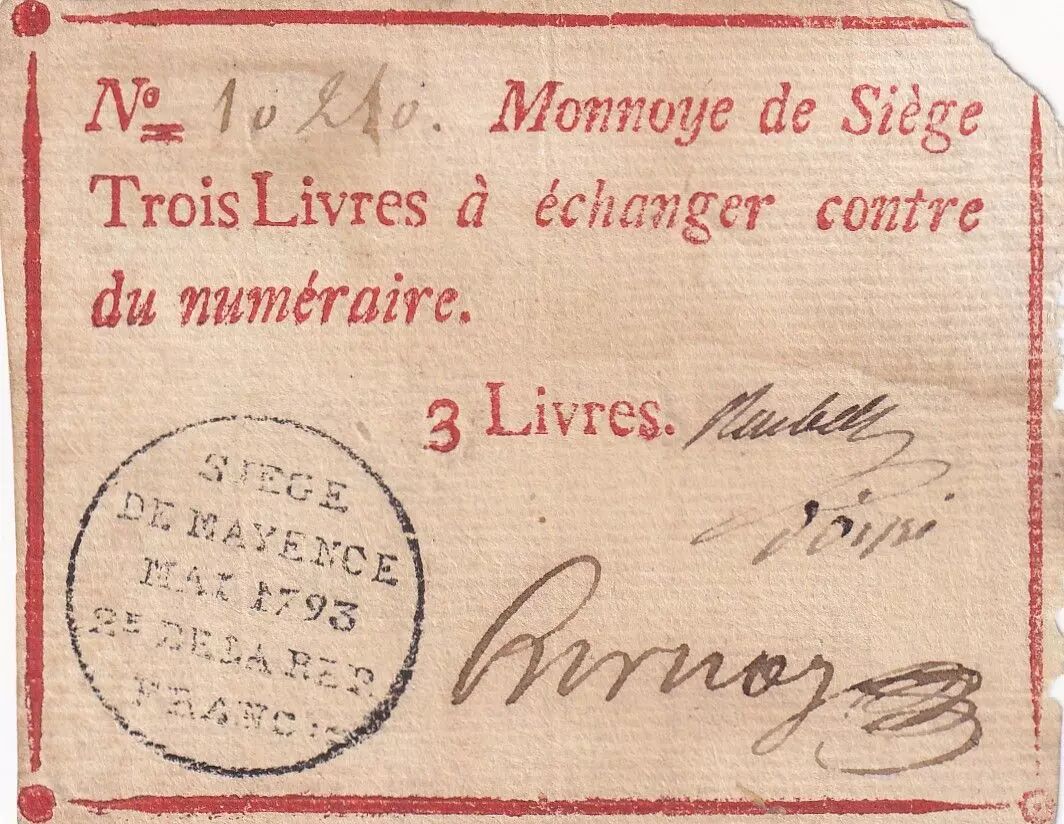 Nº 10210. Monnoye de Siège
Trois Livres à échanger contre
du numéraire.
3 Livres.
SIEGE
DE MAYENCE
MAI 1793
2E DE LA REP
FRANCSE